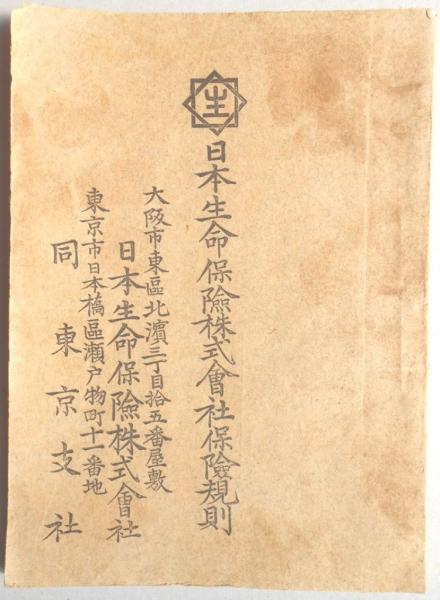 生
日本生命保險株式會社保險規則
大阪市東區北濱三丁目拾五番屋敷
日本生命保險株式會社
東京市日本橋區瀬戸物町十一番地
同東京支社